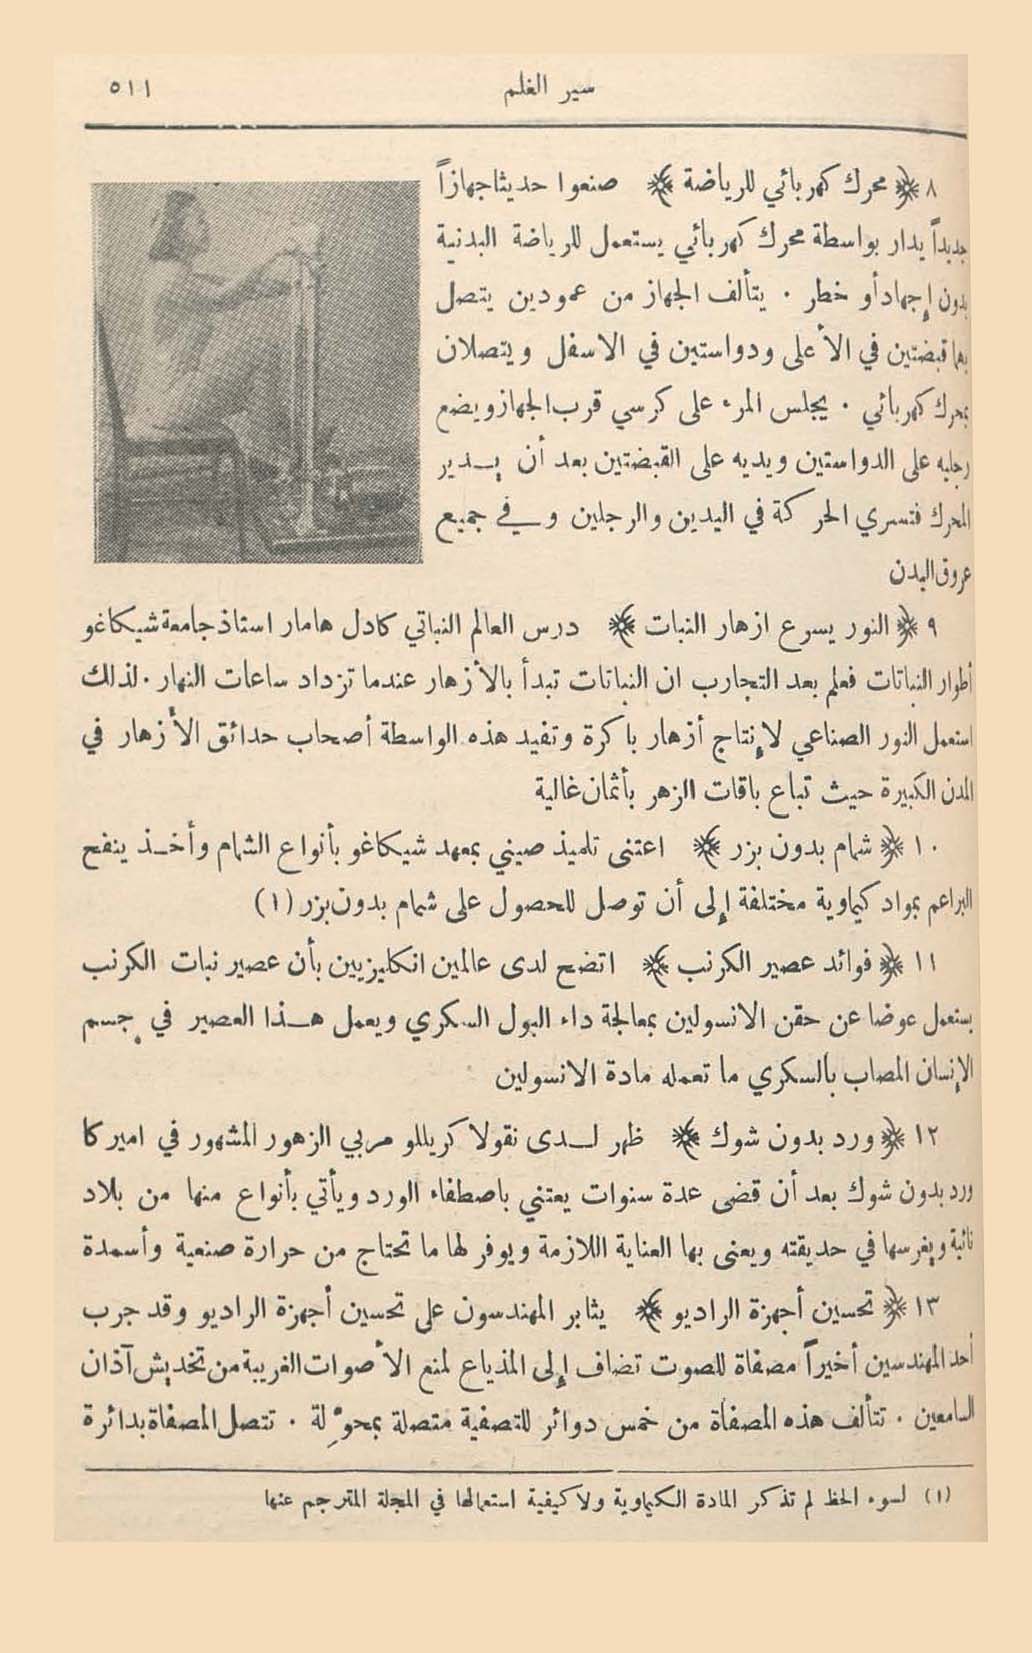 سير العلم ٥١١
٨ ﴿ محرك كهربائي للرياضة ﴾ صنعوا حديثاجهازاً
جديداً يدار بواسطة محرك كهربائي يستعمل للرياضة البدنية
بدون إجهادأو خطر . يتألف الجهاز من عمودين يتصل
بهما قبضتين في الأعلى ودواستين في الاسفل ويتصلان
بمحرك كهربائي . يجلس المرء على كرسي قرب الجهازويضع
رجليه على الدواستين ويديه على القبضتين بعد أن يـدير
المحرك فتسري الحركة في اليدين والرجلين وفي جميع
عروق البدن
٩ ﴿ النور يسرع ازهار النبات ﴾ درس العالم النباتي كادل هامار استاذجامعة شيكاغو
أطوار النباتات فعلم بعد التجارب ان النباتات تبدأ بالأزهار عندما تزداد ساعات النهار . لذلك
استعمل النور الصناعي لإنتاج أزهار باكرة وتفيد هذه الواسطة أصحاب حدائق الأزهار في
المدن الكبيرة حيث تباع باقات الزهر بأثمان غالية
١٠ ﴿ شمام بدون بزر ﴾ اعتنى تلميذ صيني بمعهد شيكاغو بأنواع الشمام وأخـذ ينفح
البراعم بمواد كيماوية مختلفة إلى أن توصل للحصول على شمام بدون بزر (١)
١١ ﴿ فوائد عصير الكرنب ﴾ اتضح لدى عالمين انكليزيين بأن عصير نبات الكرنب
يستعمل عوضا عن حقن الانسولين بمعالجة داء البول السكري ويعمل هـذا العصير في جسم
الإنسان المصاب بالسكري ما تعمله مادة الانسولين
١٢ ﴿ ورد بدون شوك ﴾ ظهر لـدى نقولا كريللو مربي الزهور المشهور في اميركا
ورد بدون شوك بعد أن قضى عدة سنوات يعتني باصطفاء الورد ويأتي بأنواع منها من بلاد
نائية ويغرسها في حديقته ويعنى بها العناية اللازمة ويوفر لها ما تحتاج من حرارة صنعية وأسمدة
١٣ ﴿ تحسين أجهزة الراديو ﴾ يثابر المهندسون على تحسين أجهزة الراديو وقد جرب
أحد المهندسين أخيراً مصفاة للصوت تضاف إلى المذياع لمنع الأصوات الغريبة من تخديش آذان
السامعين . تتألف هذه المصفاة من خمس دوائر للتصفية متصلة بمحوِّلة . تتصل المصفاة بدائرة
(١) لسوء الحظ لم تذكر المادة الكيماوية ولا كيفية استعمالها في المجلة المترجم عنها